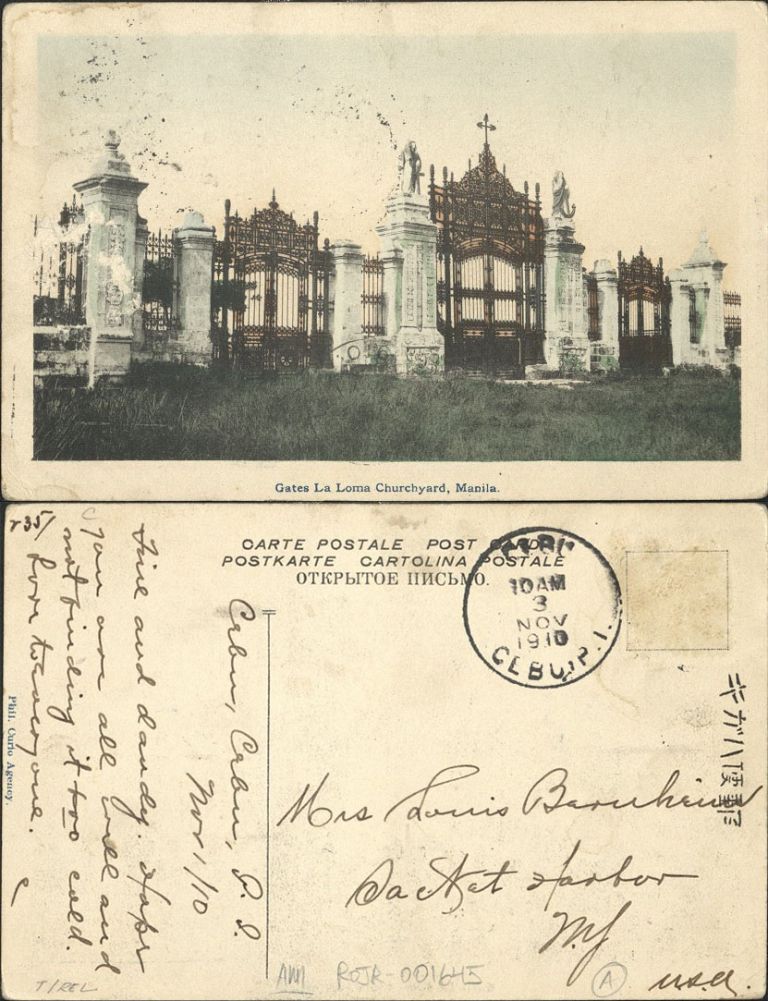 Gates La Loma Churchyard, Manila.
CARTE POSTALE POST CARD
POSTKARTE CARTOLINA POSTALE
ОТКРЫТОЕ ПИСЬМО.
10 AM
3
NOV
1910
CEBU, P.I.
キガハ便郵
Cebu, Cebu, P. I.
Nov 1/10
Fine and dandy. Hope
you are all well and
not finding it too cold.
Love to everyone.
Phil. Curio Agency.
Mrs Louis Barnheim
Sacket Harbor
N.Y
U.S.A.
T/REL
AM ROJR-001645
A